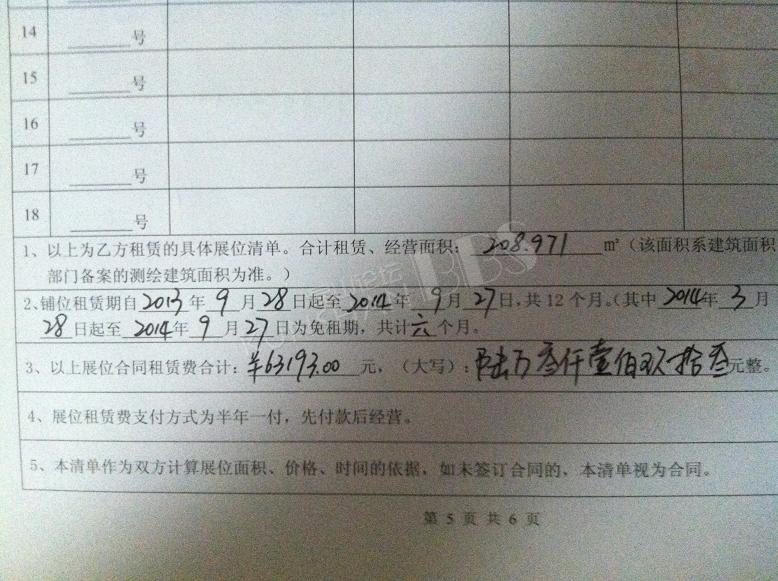 14 ______号
15 ______号
16 ______号
17 ______号
18 ______号
1、以上为乙方租赁的具体展位清单。合计租赁、经营面积：208.971 m²（该面积系建筑面积
部门备案的测绘建筑面积为准。）
2、铺位租赁期自2013年9月28日起至2014年9月27日，共12个月。（其中2014年3月
28日起至2014年9月27日为免租期，共计六个月。
3、以上展位合同租赁费合计：¥63193.00元，（大写）：陆万叁仟壹佰玖拾叁元整。
4、展位租赁费支付方式为半年一付，先付款后经营。
5、本清单作为双方计算展位面积、价格、时间的依据，如未签订合同的，本清单视为合同。
第 5 页 共 6 页